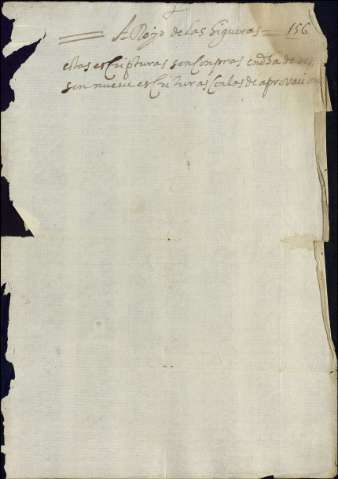 ARoyo de las higueras 156
estas escripturas son compras
son nueve escrituras con las de aprovaci